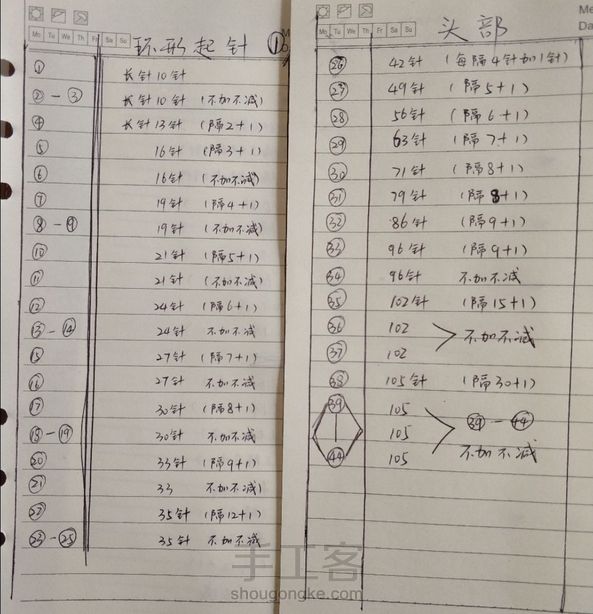 Mo Tu We Th Fr Sa Su
环形起针 ①
① 长针10针
②－③ 长针10针 (不加不减)
④ 长针13针 (隔2+1)
⑤ 16针 (隔3+1)
⑥ 16针 (不加不减)
⑦ 19针 (隔4+1)
⑧－⑨ 19针 (不加不减)
⑩ 21针 (隔5+1)
⑪ 21针 (不加不减)
⑫ 24针 (隔6+1)
⑬－⑭ 24针 不加不减
⑮ 27针 (隔7+1)
⑯ 27针 不加不减
⑰ 30针 (隔8+1)
⑱－⑲ 30针 不加不减
⑳ 33针 (隔9+1)
㉑ 33 不加不减)
㉒ 35针 (隔12+1)
㉓－㉕ 35针 不加不减
Mo Tu We Th Fr Sa Su
头部
Me
Da
㉖ 42针 (每隔4针加1针)
㉗ 49针 (隔5+1)
㉘ 56针 (隔6+1)
㉙ 63针 (隔7+1)
㉚ 71针 (隔8+1)
㉛ 79针 (隔8+1)
㉜ 86针 (隔9+1)
㉝ 96针 (隔9+1)
㉞ 96针 不加不减
㉟ 102针 (隔15+1)
㊱ 102
㊲ 102
不加不减
㊳ 105针 (隔30+1)
㊴ 105
105
㊹ 105
㊴－㊹
不加不减
手工客
shougongke.com